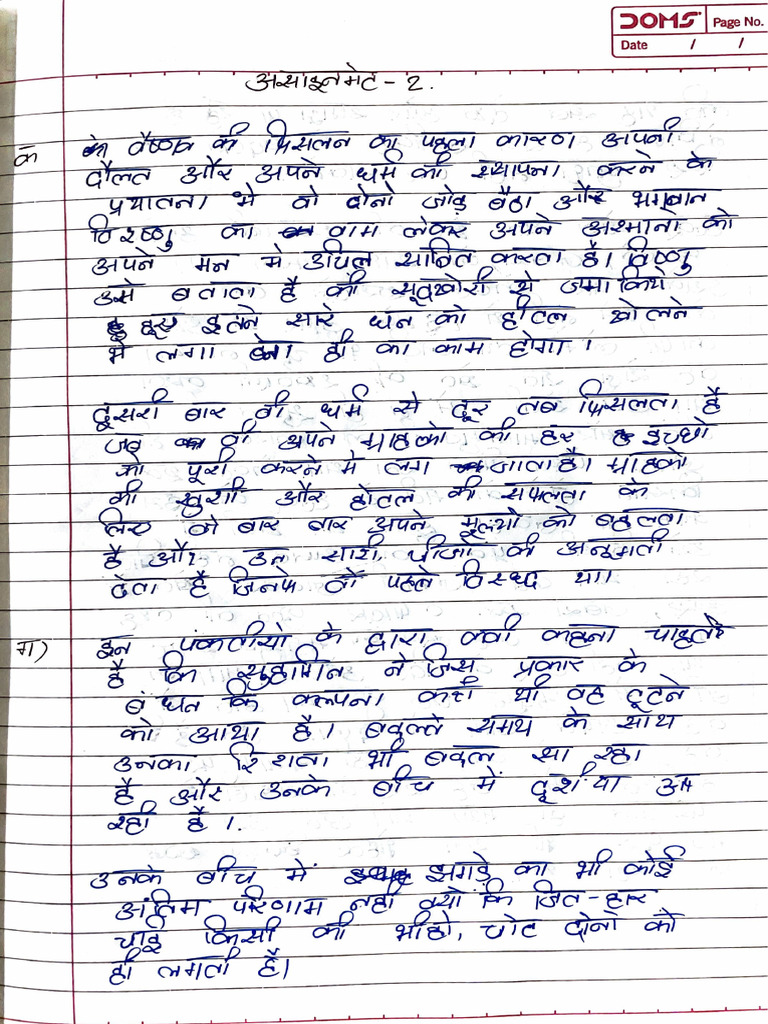 DOMS Page No.
Date / /
असाइनमेंट - 2.
क वैष्णव की फिसलन का पहला कारण अपनी
दौलत और अपने धर्म की स्थापना करने के
प्रयातना मे वो दोनो जोड़ बैठा और भगवान
विष्णु का नाम लेकर अपने अरमानो को
अपने मन मे उचित साबित करता है। विष्णु
उसे बताता है की सूदखोरी से जमा किये
हुए इतने सारे धन को होटल खोलने
मे लगा देना ही का काम होगा।
दूसरी बार वो धर्म से दूर तब फिसलता है
जब वो अपने ग्राहको की हर इच्छो
को पूरी करने मे लग जाता है। ग्राहको
की खुशी और होटल की सफलता के
लिए वो बार बार अपने मूल्यो को बदलता
है और उन सारी चीजो की अनुमती
देता है जिनके वो पहले विरुध्ध था।
ग) इन पंकतीयो के द्वारा कवी कहना चाहते
है कि सुहागिन ने जिस प्रकार के
बंधन कि कल्पना करी थी वह टूटने
को आया है। बदलते समय के साथ
उनका रिशता भी बदल सा रहा
है और उनके बीच में दूरीया आ
रही है।
उनके बीच में झगड़े का भी कोई
अंतिम परिणाम नही क्यो कि जित-हार
चाहे किसी की भी हो, चोट दोनो को
ही लगती है।